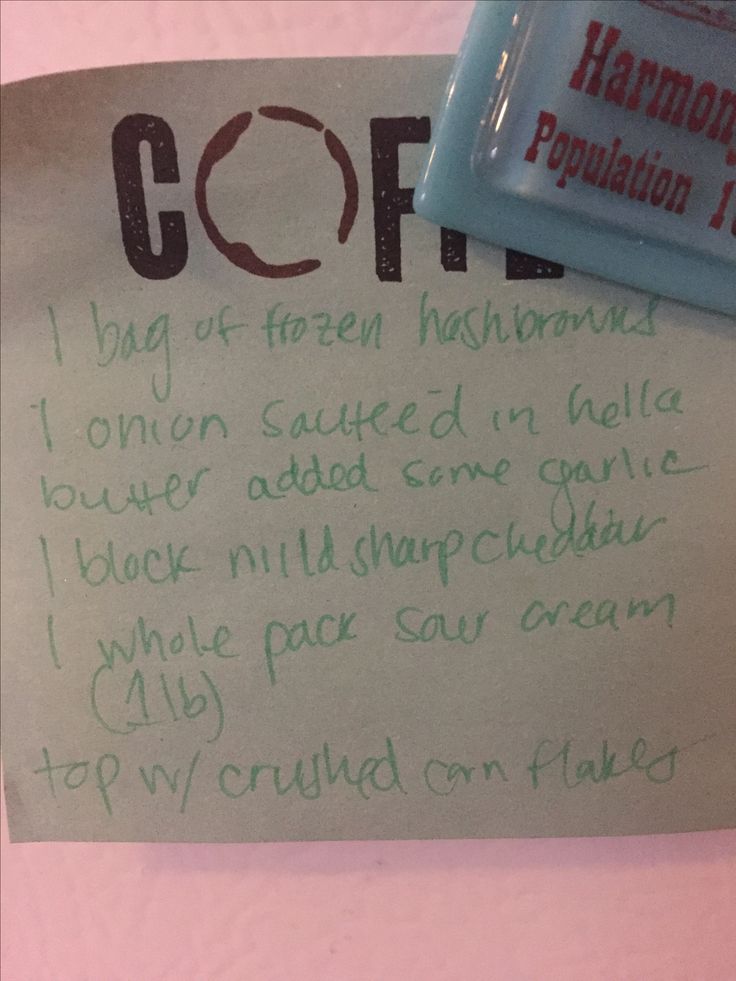 COFFE
Harmony
Population 1
1 bag of frozen hashbrowns
1 onion sauteed in hella
butter added some garlic
1 block mild sharp cheddar
1 whole pack sour cream
(1 lb)
top w/ crushed corn flakes